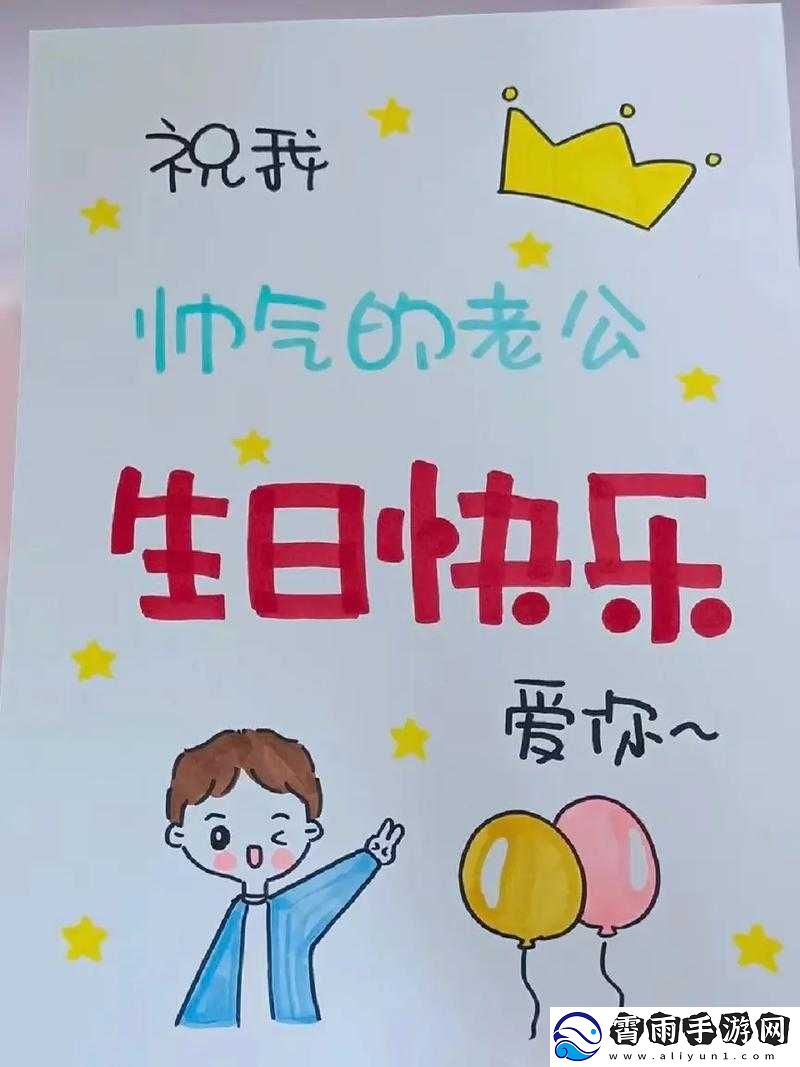 祝我
帅气的老公
生日快乐
爱你~
霄雨手游网
www.aliyun1.com